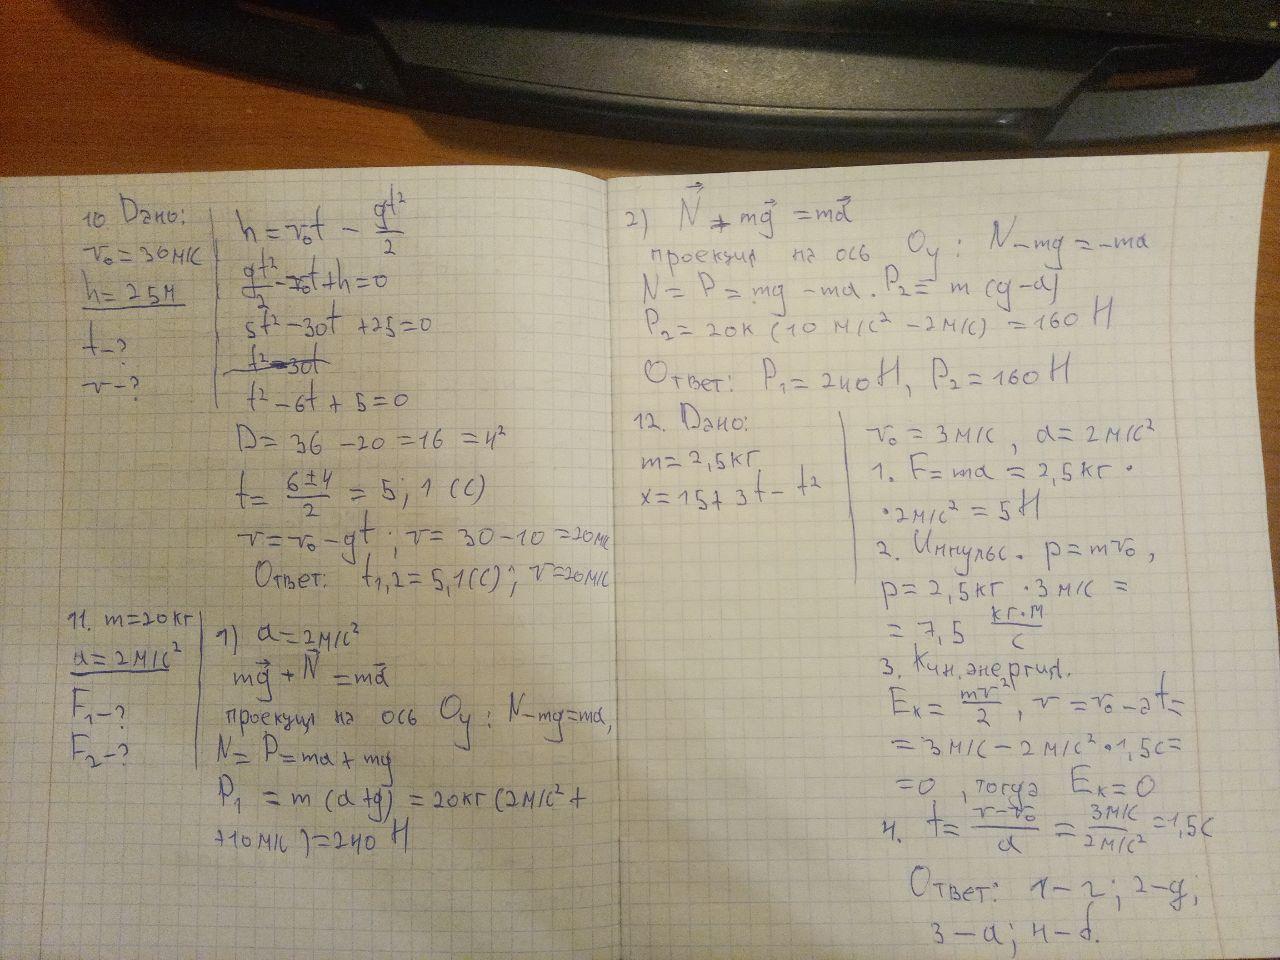 10 Дано:
v₀ = 30 м/с
h = 25м
t - ?
v - ?
h = v₀t - gt²/2
gt²/2 - v₀t + h = 0
5t² - 30t + 25 = 0
t² - 30t
t² - 6t + 5 = 0
D = 36 - 20 = 16 = 4²
t = (6 ± 4)/2 = 5; 1 (с)
v = v₀ - gt; v = 30 - 10 = 20м/с
Ответ: t₁,₂ = 5,1(с); v = 20м/с
11. m = 20кг
a = 2м/с²
F₁ - ?
F₂ - ?
1) a = 2м/с²
mg⃗ + N⃗ = ma⃗
проекция на ось Oy: N - mg = ma,
N = P = ma + mg
P₁ = m (a + g) = 20кг (2м/с² +
+ 10 м/с) = 240 Н
2) N⃗ + mg⃗ = ma⃗
проекция на ось Oy: N - mg = -ma
N = P = mg - ma. P₂ = m (g - a)
P₂ = 20к (10 м/с² - 2м/с) = 160 Н
Ответ: P₁ = 240Н, P₂ = 160Н
12. Дано:
m = 2,5кг
x = 15 + 3t - t²
v₀ = 3м/с, a = 2м/с²
1. F = ma = 2,5кг ·
· 2м/с² = 5Н
2. Импульс. p = mv₀,
p = 2,5кг · 3м/с =
= 7,5 кг·м/с
3. Кин. энергия.
Eк = mv²/2, v = v₀ - at =
= 3м/с - 2м/с² · 1,5с =
= 0, тогда Eк = 0
4. t = (v - v₀)/a = 3м/с / 2м/с² = 1,5с
Ответ: 1 - г; 2 - д;
3 - а; 4 - б.